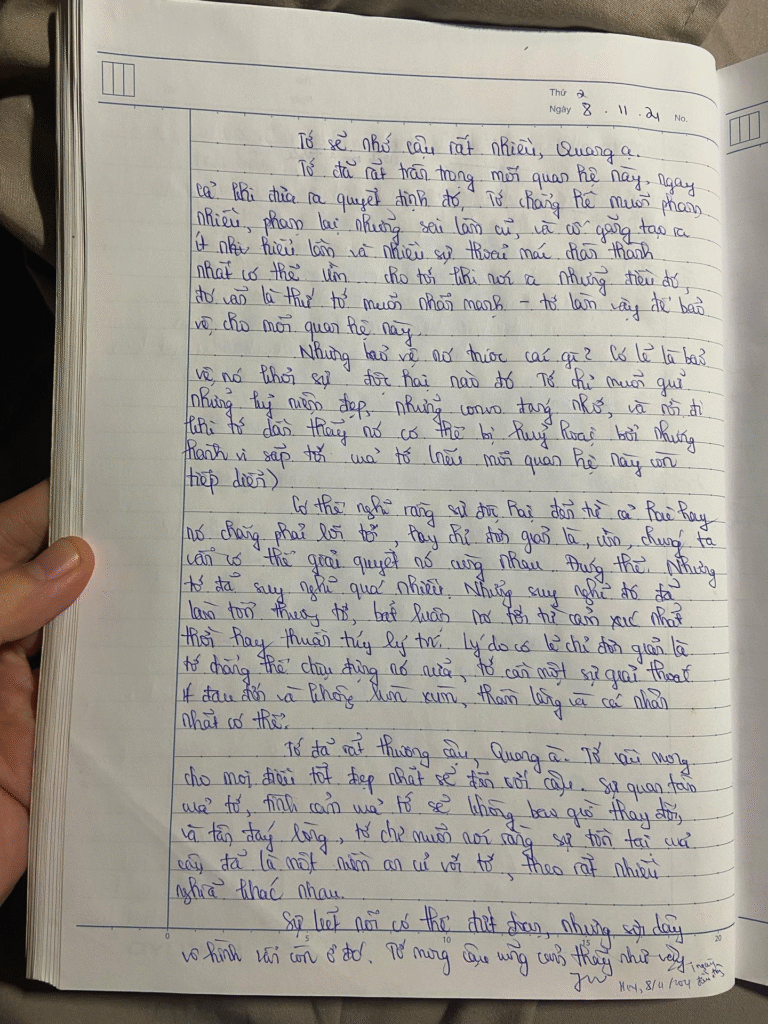 Thứ 2
Ngày 8 . 11 . 21 No.
Tớ sẽ nhớ cậu rất nhiều, Quang ạ.
Tớ đã rất trân trọng mối quan hệ này, ngay
cả khi đưa ra quyết định đó, Tớ chẳng hề muốn phạm
nhiều, phạm lại những sai lầm cũ, và cố gắng tạo ra
ít nhịu hiểu lầm và nhiều sự thoải mái chân thành
nhất có thể cho tới khi nói ra những điều đó,
đó vẫn là thứ tớ muốn nhấn mạnh – tớ làm vậy để bảo
vệ cho mối quan hệ này.
Nhưng bảo vệ nó trước cái gì? Có lẽ là bảo
vệ nó khỏi sự độc hại nào đó Tớ chỉ muốn giữ
những kỷ niệm đẹp, những convo đáng nhớ, và rời đi
khi tớ dần thấy nó có thể bị huỷ hoại bởi những
hành vi sắp tới của tớ (nếu mối quan hệ này còn
tiếp diễn)
Có thể nghĩ rằng sự độc hại đến từ cả hai hay
nó chẳng phải lỗi tớ, hay chỉ đơn giản là, ừm, chúng ta
vẫn có thể giải quyết nó cùng nhau. Đúng thế. Nhưng
tớ đã suy nghĩ quá nhiều. Những suy nghĩ đó đã
làm tổn thương tớ, bất luận nó tới từ cảm xúc nhất
thời hay thuần túy lý trí. Lý do có lẽ chỉ đơn giản là
tớ chẳng thể chịu đựng nó nữa, tớ cần một sự giải thoát
ít đau đớn và không lùm xùm, thầm lặng và cá nhân
nhất có thể.
Tớ đã rất thương cậu, Quang à. Tớ vẫn mong
cho mọi điều tốt đẹp nhất sẽ đến với cậu. Sự quan tâm
của tớ, tình cảm của tớ sẽ không bao giờ thay đổi,
và tận đáy lòng, tớ chỉ muốn nói rằng sự tồn tại của
cậu đã là một niềm an ủi với tớ, theo rất nhiều
nghĩa khác nhau.
Sự kết nối có thể đứt đoạn, nhưng sợi dây
vô hình vẫn còn ở đó. Tớ mong cậu cũng cảm thấy như vậy.
0 5 10 15 20
8/11/2021